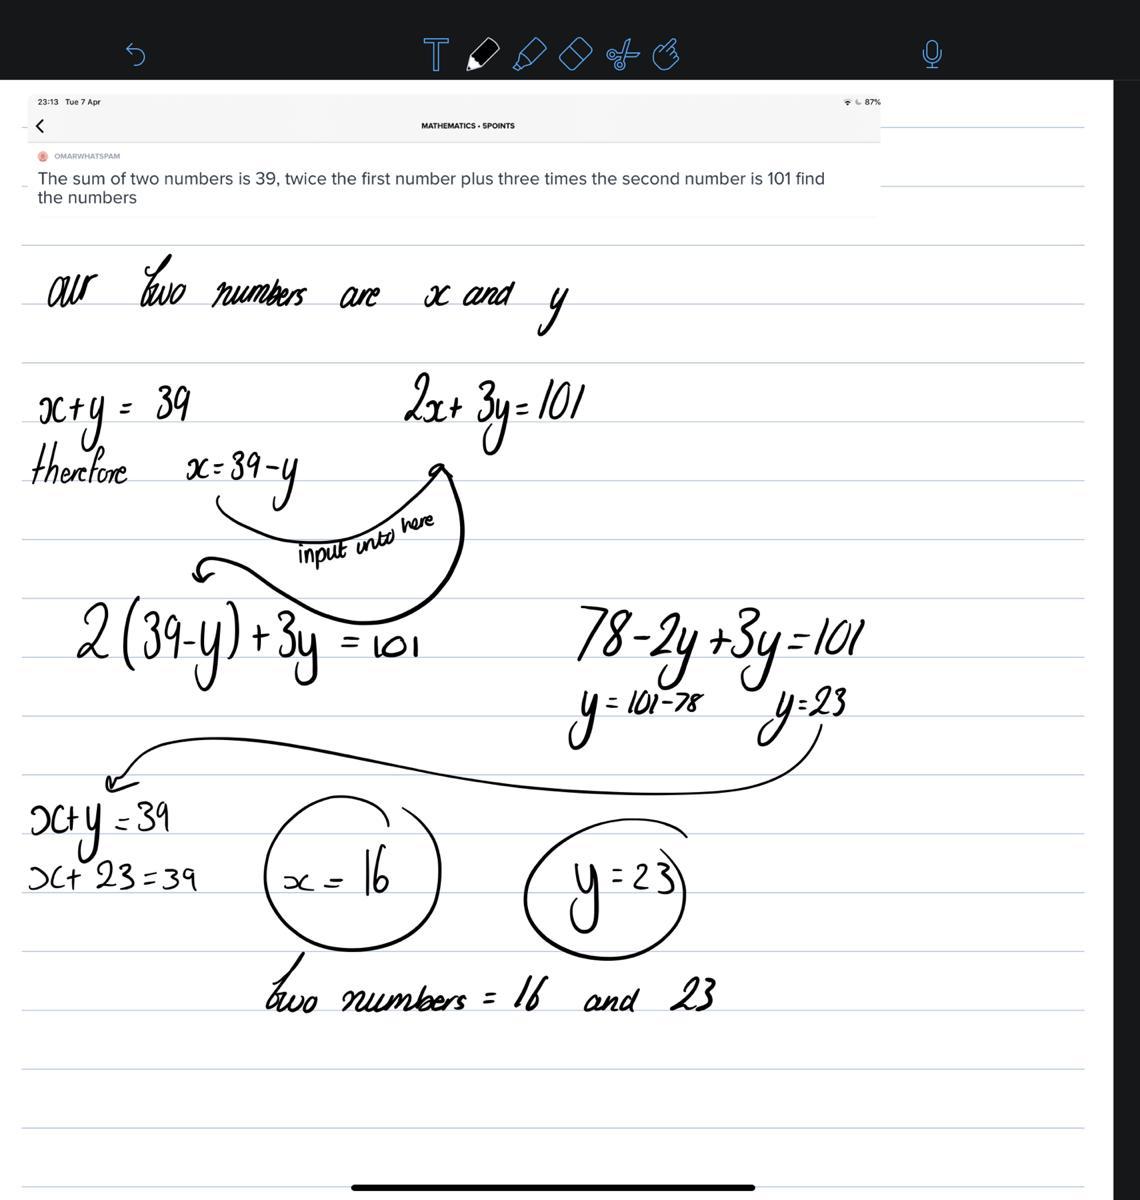 23:13 Tue 7 Apr
87%
MATHEMATICS • 5POINTS
OMARWHATSPAM
The sum of two numbers is 39, twice the first number plus three times the second number is 101 find
the numbers
our two numbers are x and y
x+y = 39
2x+ 3y=101
therefore x=39-y
input unto here
2(39-y)+3y =101
78-2y+3y=101
y=101-78 y=23
x+y=39
x+ 23=39
x= 16
y=23
two numbers = 16 and 23